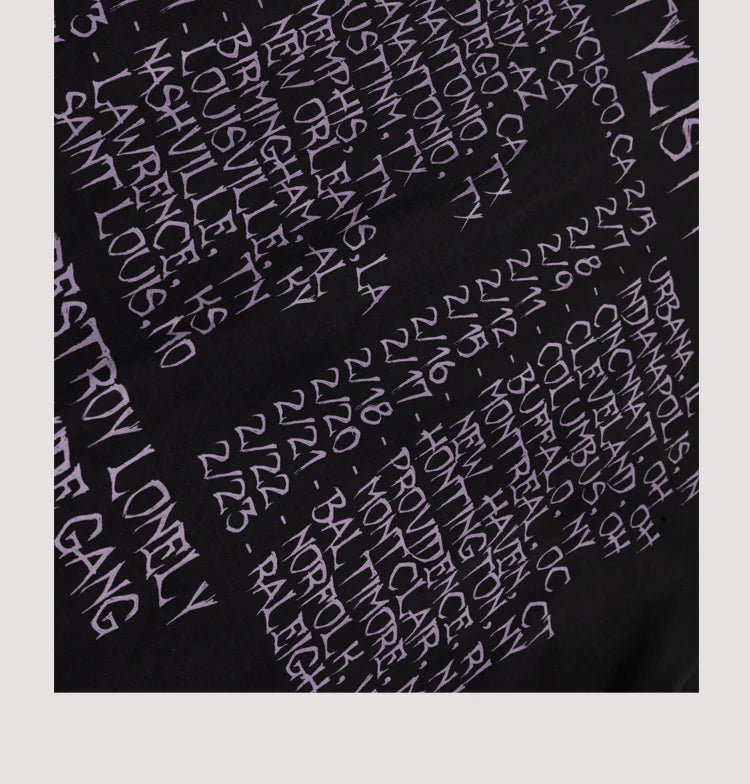 TYLIST
ANCISCO, CA
EM, CA
ENIX, AZ
DIEGO, CA
ANTONIO, TX
NEW ORLEANS, LA
- BIRMINGHAM, AL
- LOUISVILLE, KY
- NASHVILLE, TN
- LAWRENCE, KS
3 - SAINT LOUIS, MO
2/5 - URBANA,
2/7 - INDIANAPOLIS, IN
2/8 - CINCINNATI, OH
2/9 - CLEVELAND, OH
2/11 - COLUMBUS, OH
2/12 - BUFFALO, NY
2/15 - MONTREAL, QC
2/16 - NEW HAVEN, CT
2/17 - HUNTINGTON, NY
2/18 - PROVIDENCE, RI
2/20 - MONTCLAIR, N
2/21 - BALTIMORE,
2/22 - NORFOLK,
2/23 - RALEIGH
ESTROY LONELY
DE GANG